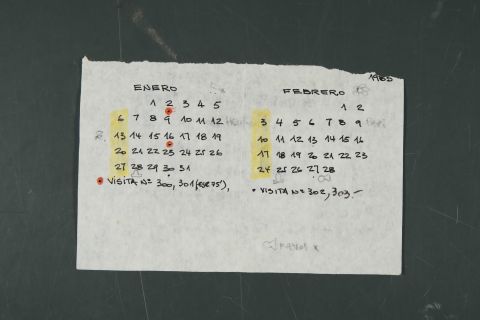 1985
ENERO
1 2 3 4 5
6 7 8 9 10 11 12
13 14 15 16 17 18 19
20 21 22 23 24 25 26
27 28 29 30 31
VISITA Nº 300, 301 (ESE 75'),
FEBRERO
1 2
3 4 5 6 7 8 9
10 11 12 13 14 15 16
17 18 19 20 21 22 23
24 25 26 27 28
• VISITA Nº 302, 303.-